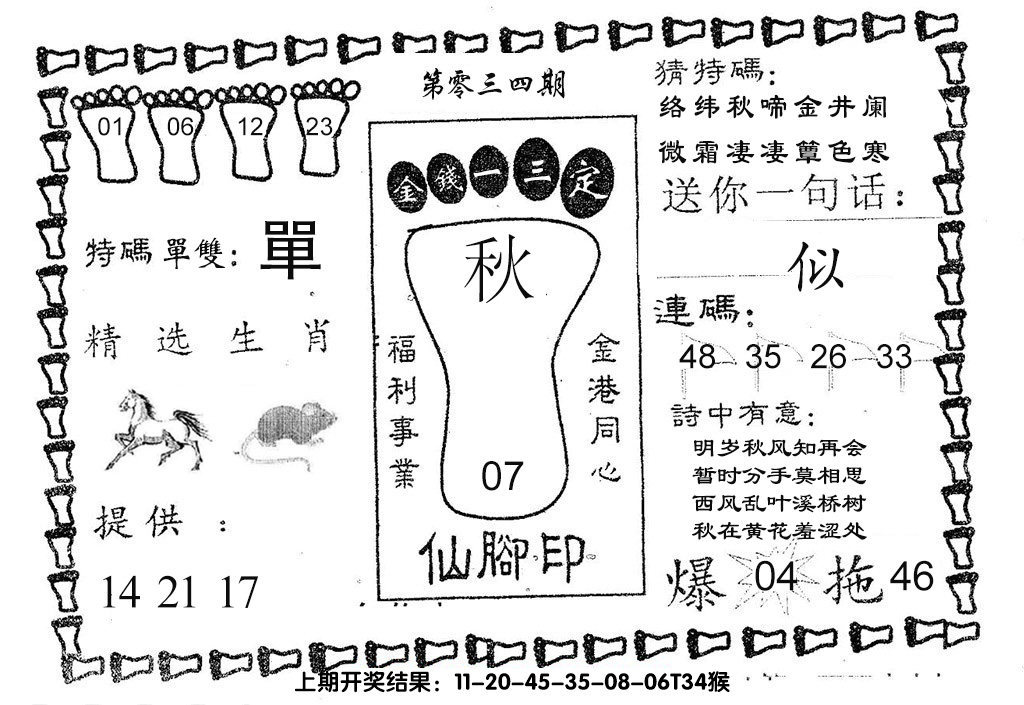 第零三四期
01 06 12 23
特碼單雙：單
精选生肖
提供：
14 21 17
金錢一三定
秋
福利事業
金港同心
07
仙腳印
猜特碼：
络纬秋啼金井阑
微霜凄凄簟色寒
送你一句话：
似
連碼：
48 35 26 33
詩中有意：
明岁秋风知再会
暂时分手莫相思
西风乱叶溪桥树
秋在黄花羞涩处
爆 04 拖 46
上期开奖结果：11-20-45-35-08-06T34猴